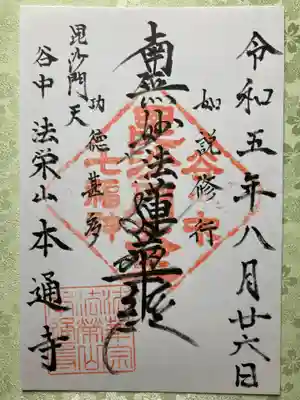 令和五年八月廿六日
如説修行
南無妙法蓮華経
功徳甚多
毘沙門天
谷中 法栄山本通寺
谷中
七福神